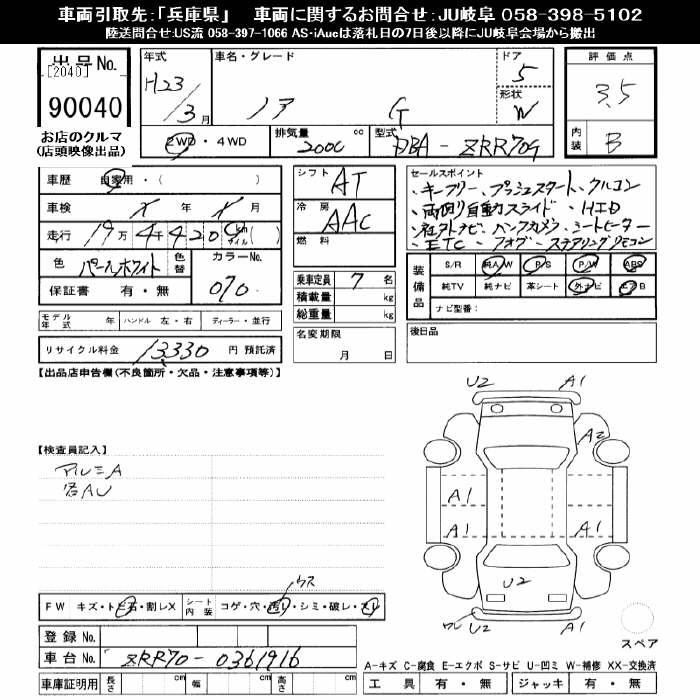 車両引取先:「兵庫県」 車両に関するお問合せ:JU岐阜 058-398-5102
陸送問合せ:US流 058-397-1066 AS・iAucは落札日の7日後以降にJU岐阜会場から搬出
出品No.
[2040]
90040
お店のクルマ
(店頭映像出品)
年式 H23/3月
車名・グレード ノア G
ドア 5
形状 W
2WD・4WD
排気量 2000 cc
型式 DBA-ZRR70G
評価点 3.5
内装 B
車歴 自家用・( )
車検 X 年 X 月
走行 19万4千420 Km マイル ( )
色 パールホワイト 色替 カラーNo. 070
保証書 有・無
モデル年式 年 ハンドル 左・右 ディーラー・並行
リサイクル料金 13330 円 預託済
シフト AT
冷房 AAC
燃料
乗車定員 7 名
積載量 kg
総重量 kg
名変期限 月 日
セールスポイント
・キーフリー、プッシュスタート、クルコン
・両側自動スライド、HID
・社外ナビ、バックカメラ、シートヒーター
・ETC、フォグ、ステアリングリモコン
装備品 S/R 純A/W P/S P/W ABS
純TV 純ナビ 革シート 外ナビ エアB
ナビ型番:
後日品
【出品店申告欄(不良箇所・欠品・注意事項等)】
【検査員記入】
アルミA
各AU
ウス
FW キズ・トビ石・割レX シート内装 コゲ・穴・汚レ・シミ・破レ・スレ
登録No.
車台No. ZRR70-0361916
車庫証明用 長さ cm 幅 cm 高さ cm
U2 A1
A2
A1
A1 A1
U2
ワレ U2 A1
スペア
A-キズ C-腐食 E-エクボ S-サビ U-凹ミ W-補修 XX-交換済
工具 有・無 ジャッキ 有・無